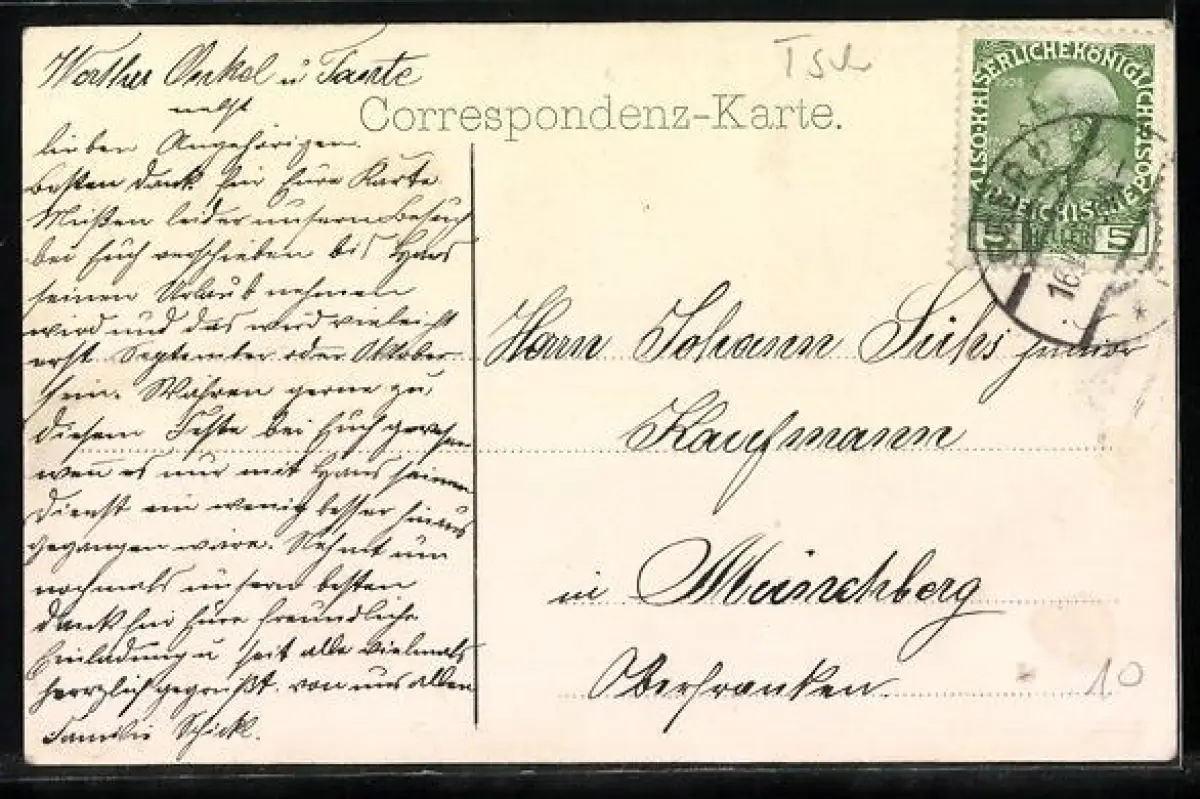 Werther Onkel u Tante
nebst
lieben Angehörigen.
Besten Dank für Eure Karte
Müßen leider unsern Besuch
bei Euch verschieben bis Hans
seinen Urlaub nehmen
wird und das wird vieleicht
erst September oder Oktober
sein. Währen gerne zu
diesem Feste bei Euch gewesen
wen es nur mit Hans seinen
Dienst ein wenig besser hinaus
gegangen wäre. Nehmt nun
nochmals unsern besten
Dank für Eure freundliche
Einladung u seit alle vielmals
herzlich gegrüßt von uns allen
Familie Schickl.
Correspondenz-Karte.
TSch
KAISERLICHE KÖNIGLICHE ÖSTERREICHISCHE POST
1908
HELLER 5
16
Herrn Johann Sühs junior
Kaufmann
in Münchberg
Oberfranken.
10